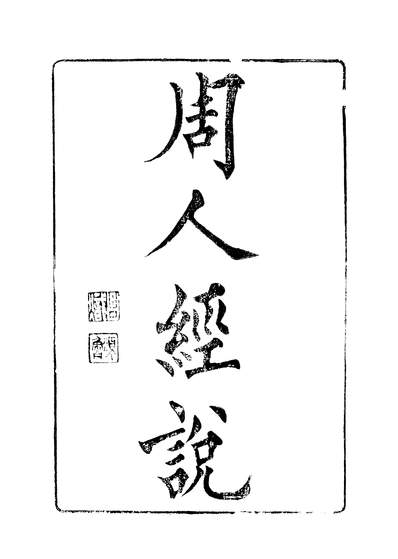 周人經說